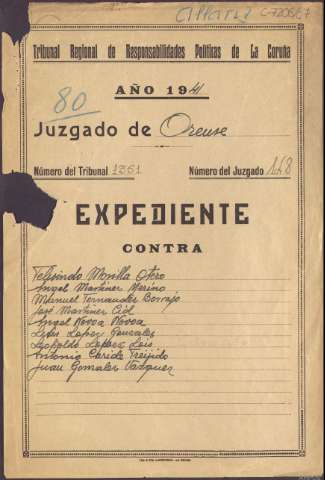 C-7206/7
Tribunal Regional de Responsabilidades Políticas de La Coruña
AÑO 1941
80
Juzgado de Orense
Número del Tribunal 1361 Número del Juzgado 148
EXPEDIENTE
CONTRA
Telesindo Morilla Otero
Angel Martinez Merino
Manuel Fernandez Borrajo
José Martinez Cid
Angel Novoa Novoa
Luis Lopez Gonzalez
Leopoldo Lopez Leis
Antonio Caride Treijido
Juan Gonzalez Vazquez